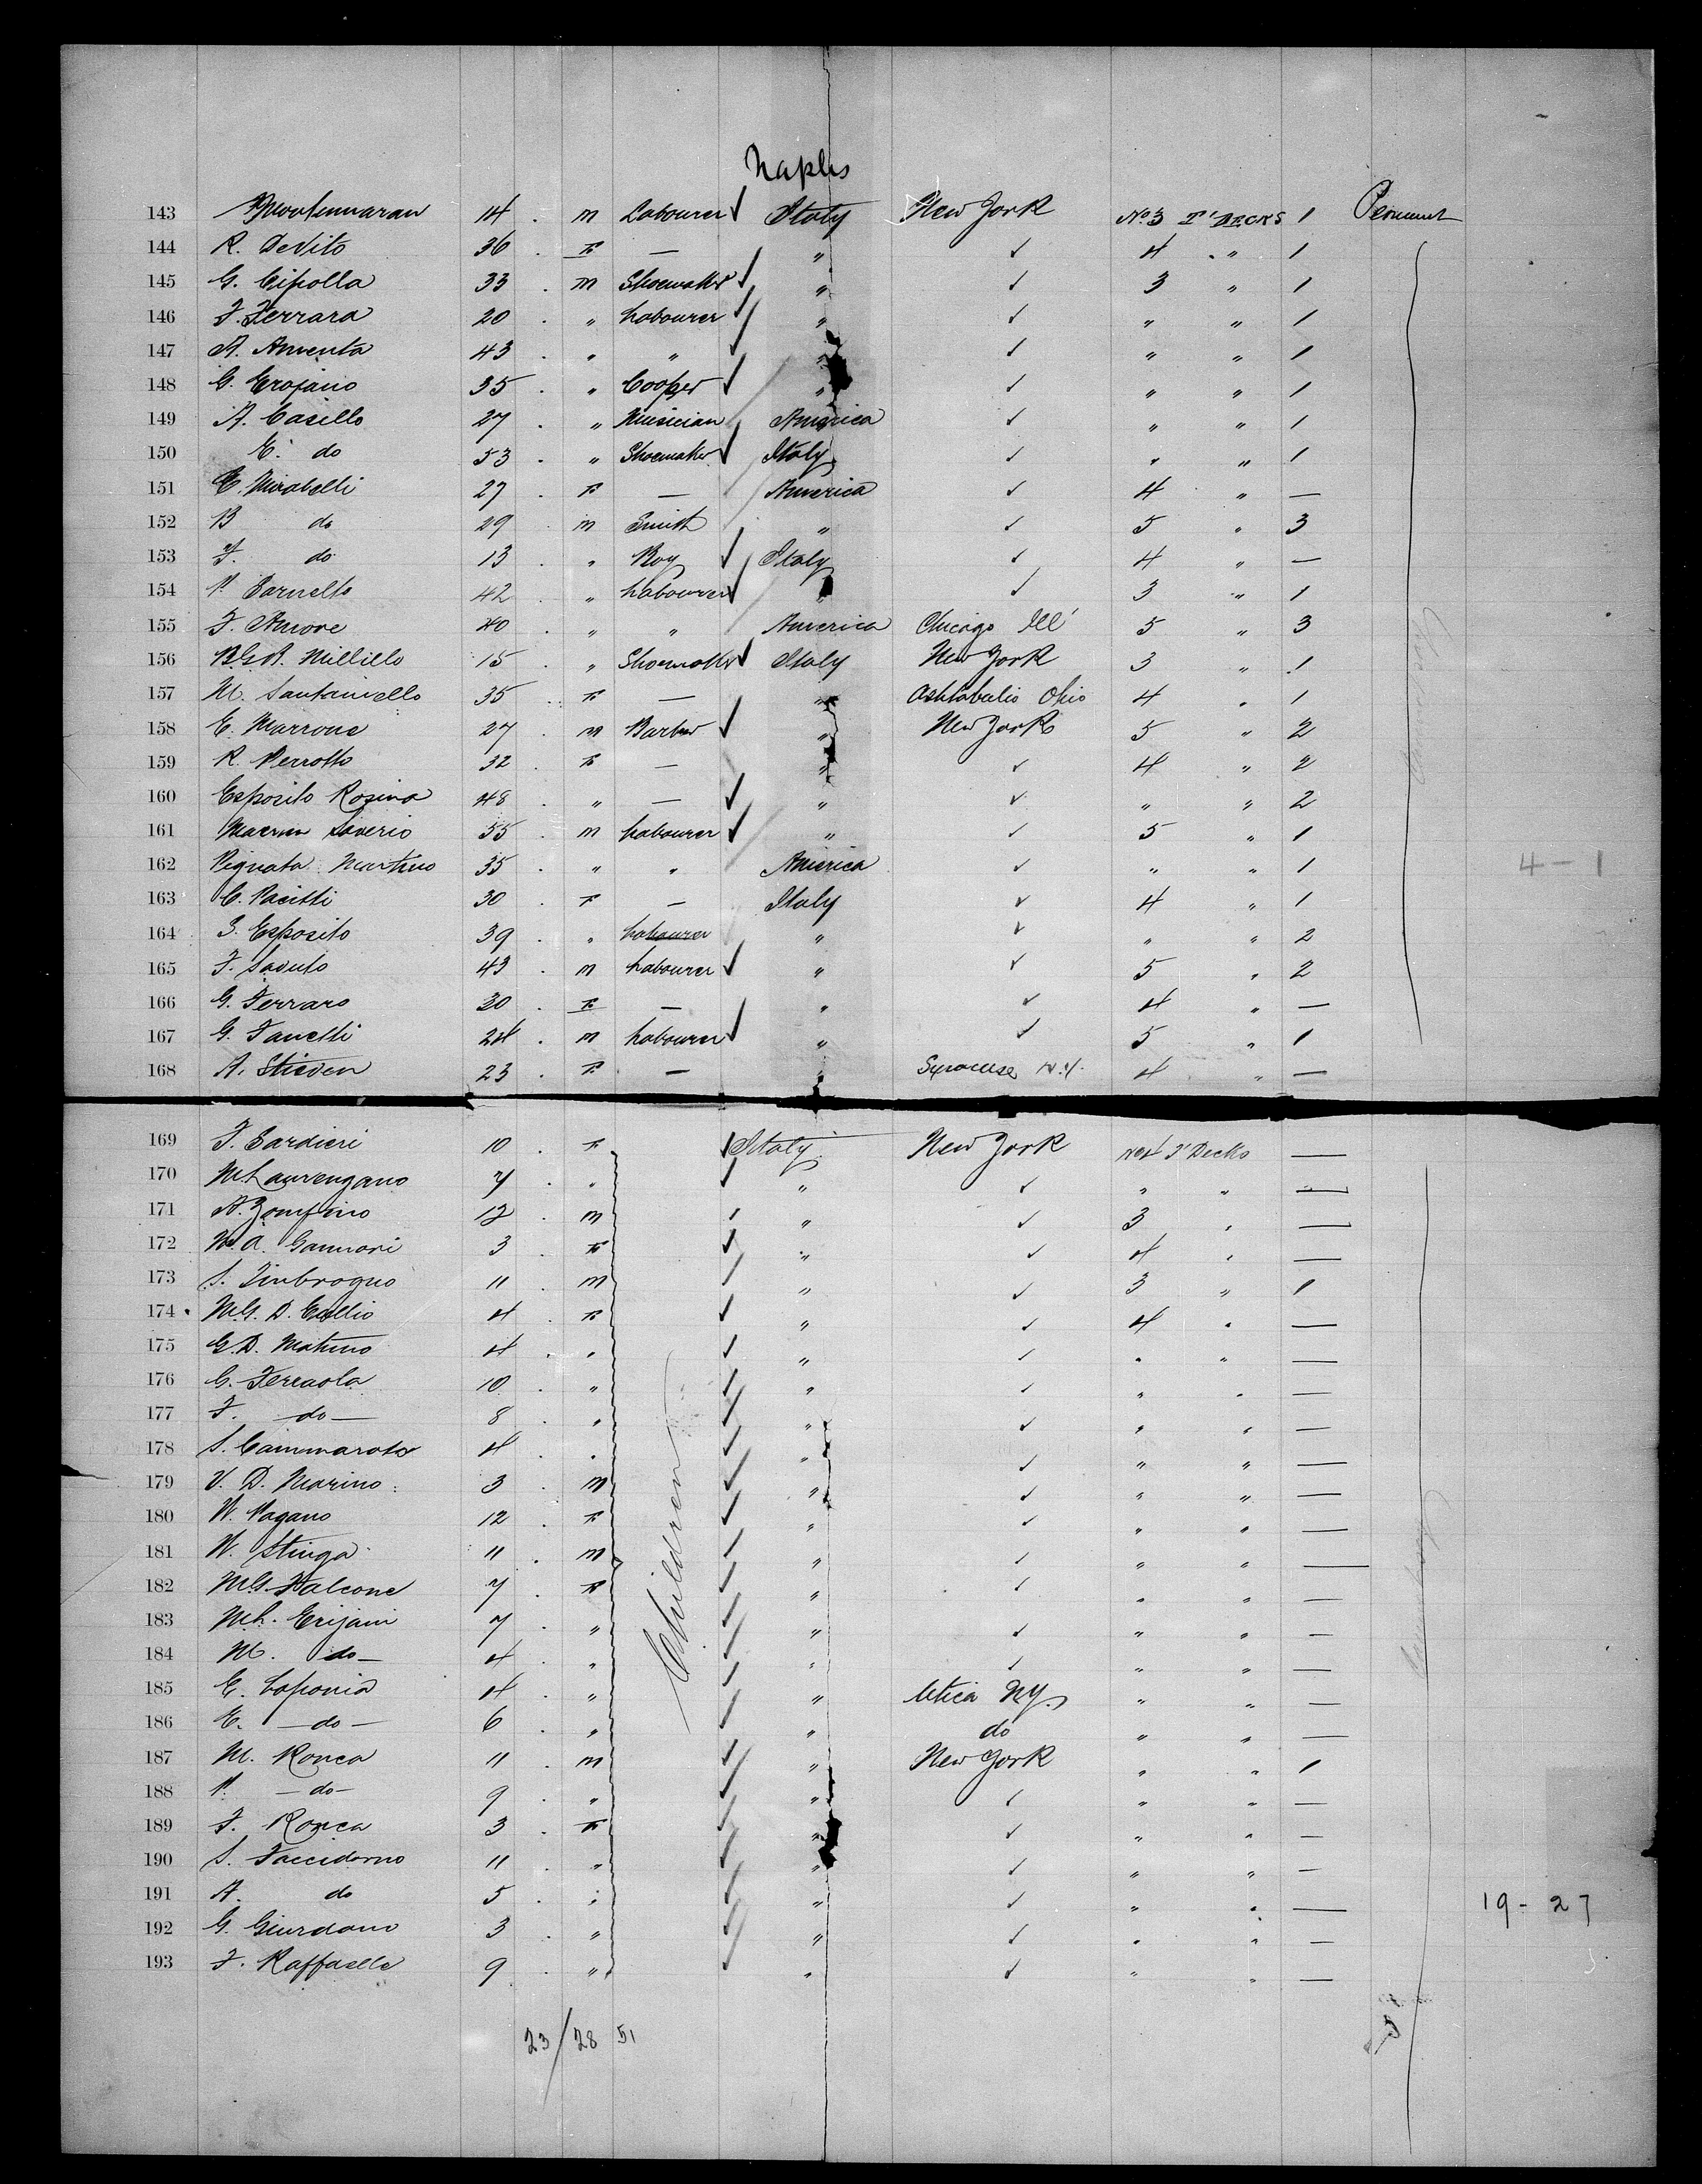 Naples
143 14 . m Labourer ✓ Italy New York No. 3 T' DECKS 1 Permanent
144 R. DeVito 36 . F — " ✓ 4 " 1
145 G. Cipolla 33 . m Shoemaker ✓ " ✓ 3 " 1
146 F. Ferrara 20 . " Labourer ✓ " ✓ " " 1
147 A. Amenta 43 . " " ✓ " ✓ " " 1
148 G. Trojano 35 . " Cooper ✓ " ✓ " " 1
149 A. Casillo 27 . " Musician America ✓ " " 1
150 E. do 53 . " Shoemaker ✓ Italy ✓ " " 1
151 E. Mirabelli 27 . F — America ✓ 4 " —
152 B do 29 . m Smith " ✓ 5 " 3
153 F. do 13 . " Boy ✓ Italy ✓ 4 " —
154 P. 42 . " Labourer ✓ " ✓ 3 " 1
155 F. Amore 40 . " " America Chicago Ill 5 " 3
156 B.G.A. Milillo 15 . " Shoemaker ✓ Italy New York 3 " 1
157 M. Santaniello 35 . F — " Ashtabulio Ohio 4 " 1
158 E. Marrone 27 . m Barber ✓ " New York 5 " 2
159 R. Perrotto 32 . F — " ✓ 4 " 2
160 Esposito Rosina 48 . " — ✓ " ✓ " " 2
161 Saverio 55 . m Labourer ✓ " ✓ 5 " 1
162 Pignata Martino 35 . " " America ✓ " " 1 4 - 1
163 C. Pacitti 30 . F — Italy ✓ 4 " 1
164 Esposito 39 . " Labourer " ✓ " " 2
165 F. Savuto 43 . m Labourer ✓ " ✓ 5 " 2
166 G. Ferraro 30 . F — " ✓ 4 " —
167 G. Fanelli 24 . m Labourer ✓ " ✓ 5 " 1
168 A. 23 . F — " Syracuse N.Y. 4 " —
169 F. Sardieri 10 . F ✓ Italy New York No 4 T' Decks —
170 M. Laurenzano 7 . " ✓ " ✓ " " —
171 A. 12 . m ✓ " ✓ 3 " —
172 M.A. 3 . F ✓ " ✓ 4 " —
173 S. Imbrogno 11 . m ✓ " ✓ 3 " 1
174 M.G. D. 4 . F ✓ " ✓ 4 " —
175 G.D. Matino 4 . " ✓ " ✓ " " —
176 G. Fercaola 10 . " ✓ " ✓ " " —
177 F. — do — 8 . " ✓ " ✓ " " —
178 S. Cammarota 4 . " ✓ " ✓ " " —
179 V. D. Marino 3 . m ✓ " ✓ " " —
180 Pagano 12 . F ✓ " ✓ " " —
181 Stinga 11 . m ✓ " ✓ " " —
182 M.G. Falcone 7 . F ✓ " ✓ " " —
183 7 . " ✓ " ✓ " " —
184 M. do — 4 . " ✓ " ✓ " " —
185 E. Caponia 4 . " ✓ " Utica N.Y. " " —
186 E. — do — 6 . " ✓ " do " " —
187 M. Ronca 11 . m ✓ " New York " " 1
188 P. — do — 9 . " ✓ " ✓ " " —
189 F. Ronca 3 . F ✓ " ✓ " " —
190 S. 11 . " ✓ " ✓ " " —
191 A. do 5 . " ✓ " ✓ " " — 19 - 27
192 G. Giordano 3 . " ✓ " ✓ " " —
193 F. Raffaelle 9 . " ✓ " ✓ " " —
Children
23/28 51